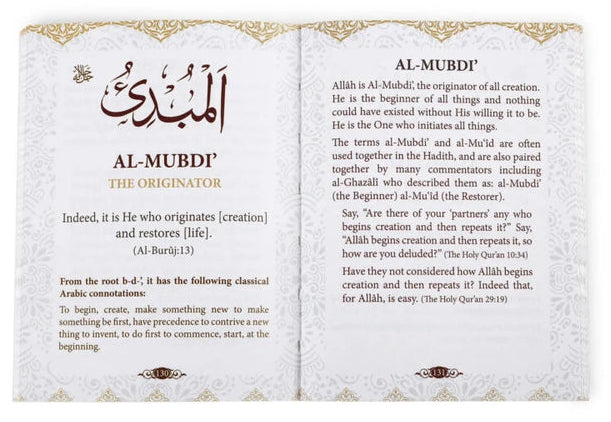 جل جلاله
اَلْمُبْدِئُ
AL-MUBDI’
THE ORIGINATOR
Indeed, it is He who originates [creation]
and restores [life].
(Al-Burûj:13)
From the root b-d-’, it has the following classical
Arabic connotations:
To begin, create, make something new to make
something be first, have precedence to contrive a new
thing to invent, to do first to commence, start, at the
beginning.
130
AL-MUBDI’
Allâh is Al-Mubdi’, the originator of all creation.
He is the beginner of all things and nothing
could have existed without His willing it to be.
He is the One who initiates all things.
The terms al-Mubdi’ and al-Mu‘îd are often
used together in the Hadith, and are also paired
together by many commentators including
al-Ghazâli who described them as: al-Mubdi’
(the Beginner) al-Mu‘îd (the Restorer).
Say, “Are there of your ‘partners’ any who
begins creation and then repeats it?” Say,
“Allâh begins creation and then repeats it, so
how are you deluded?” (The Holy Qur’an 10:34)
Have they not considered how Allâh begins
creation and then repeats it? Indeed that,
for Allâh, is easy. (The Holy Qur’an 29:19)
131